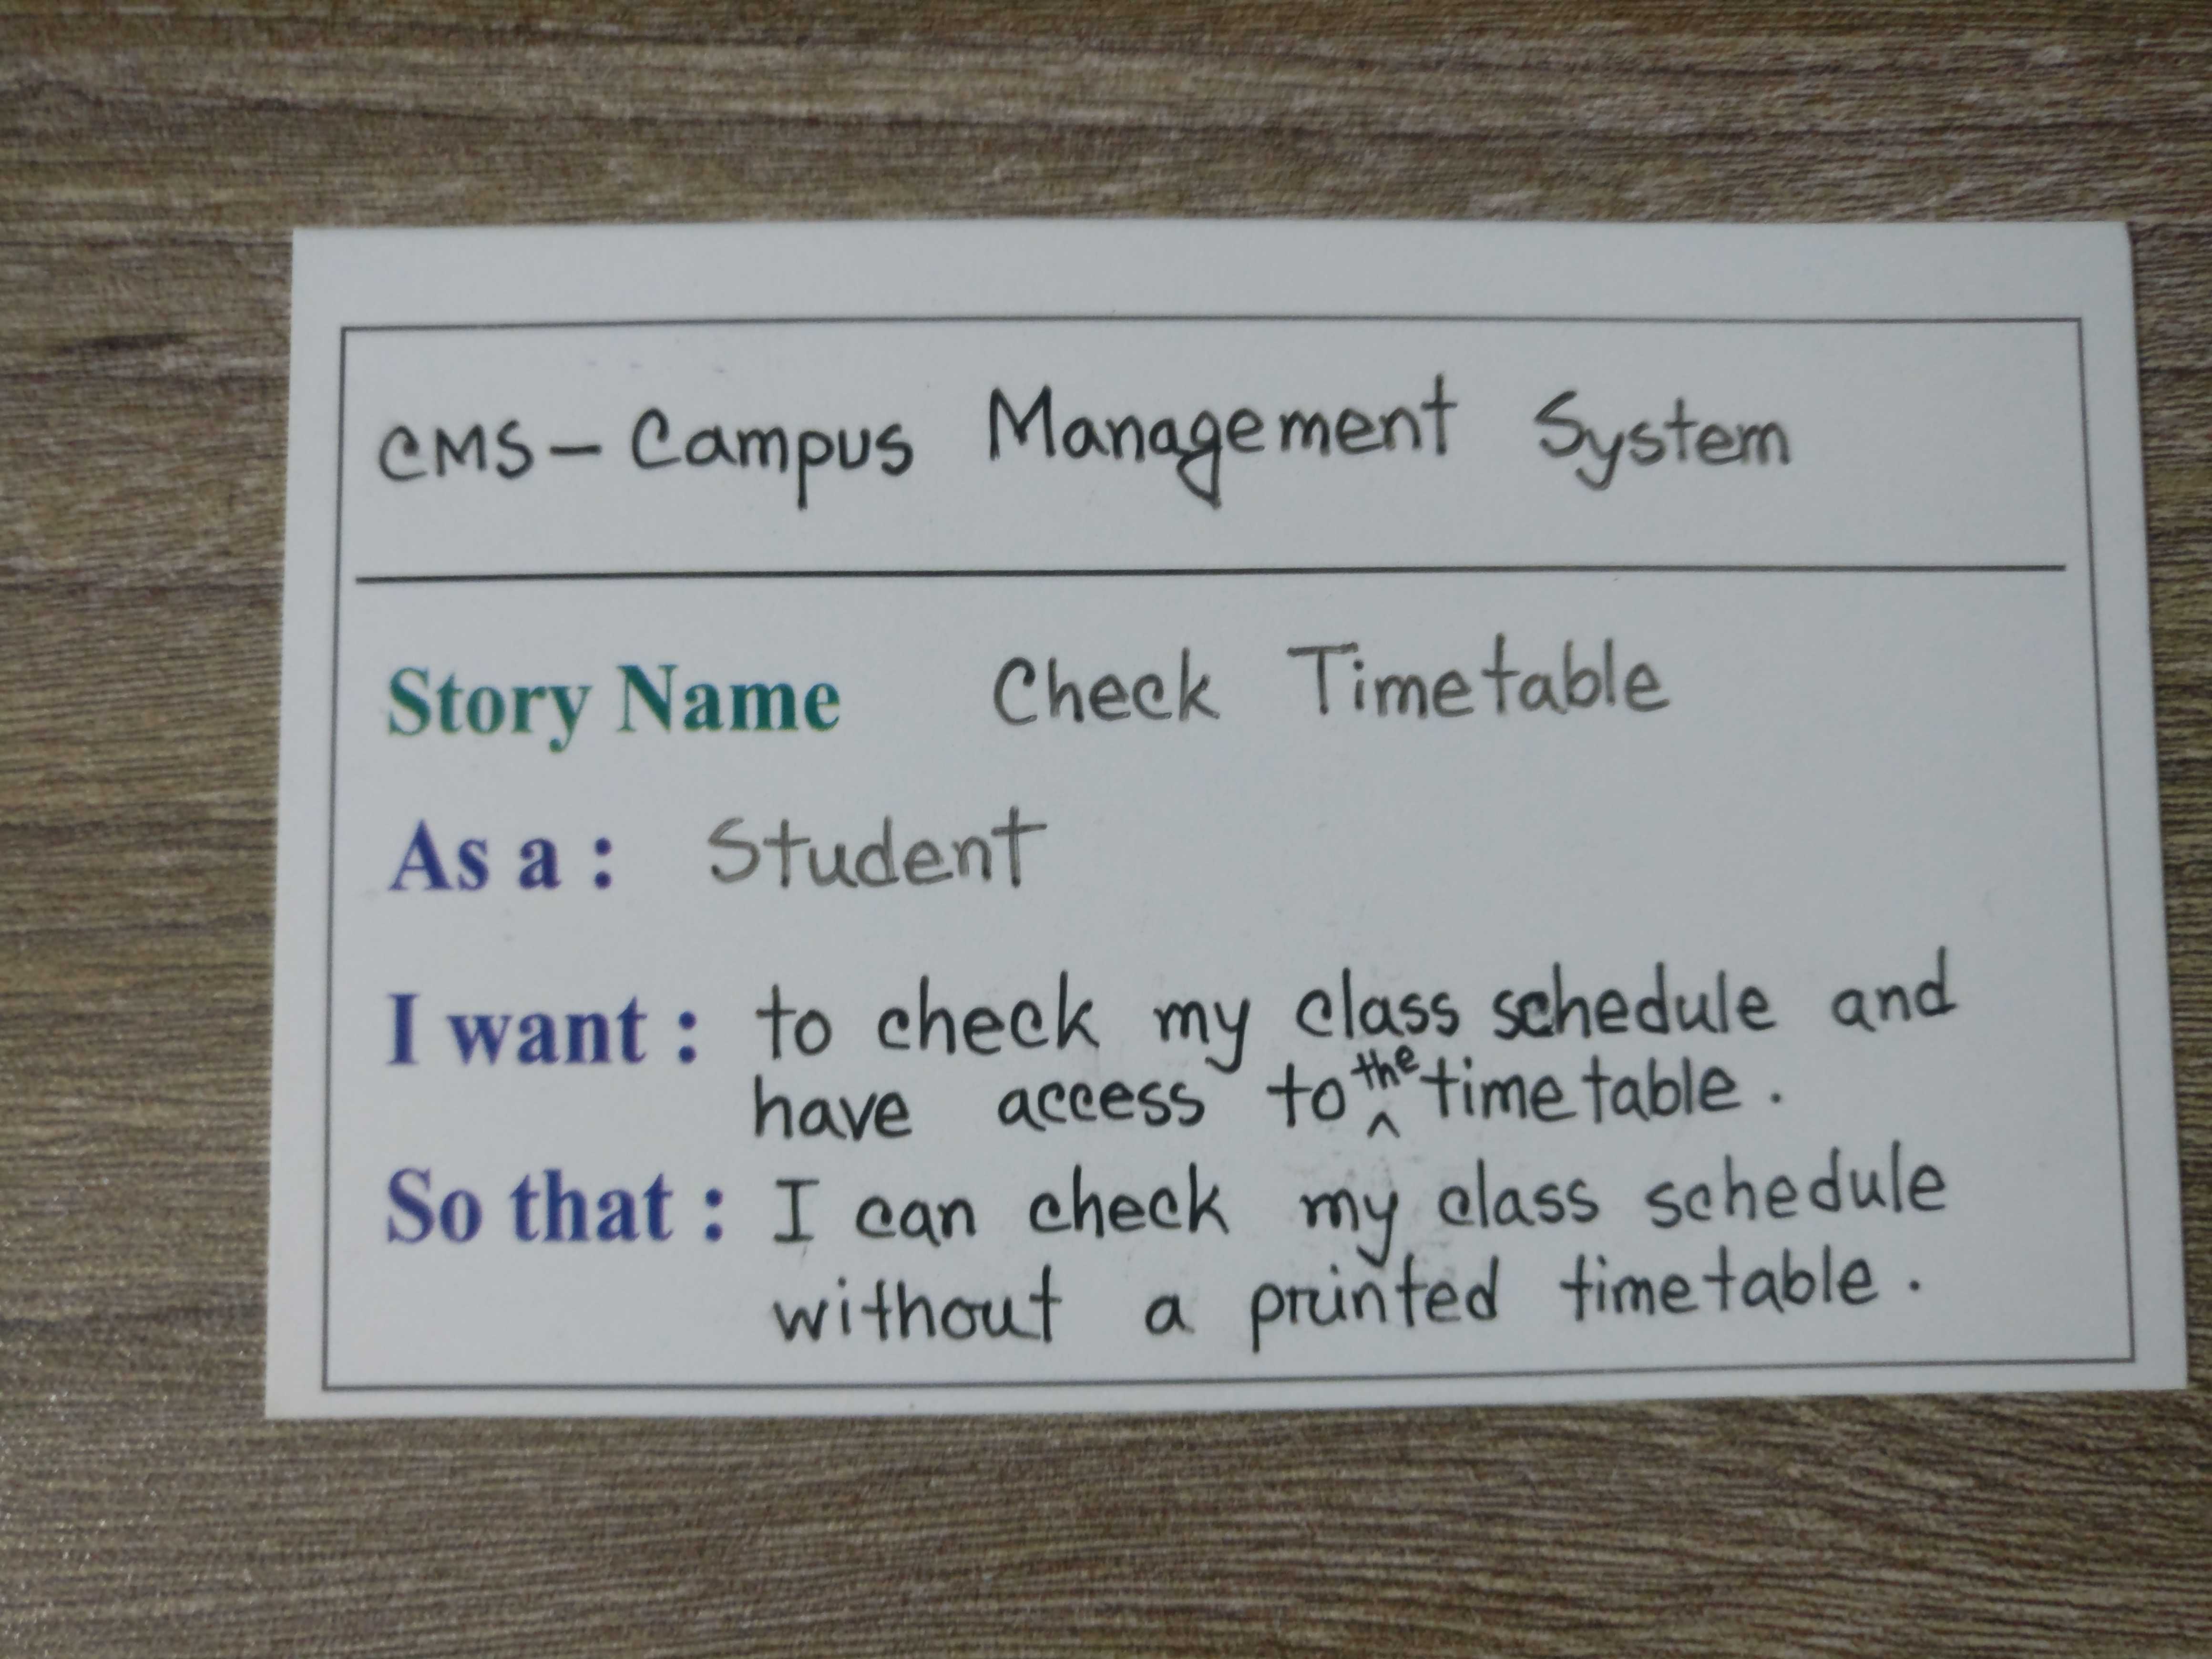 CMS - Campus Management System
Story Name Check Timetable
As a : Student
I want : to check my class schedule and
have access to the timetable.
So that : I can check my class schedule
without a printed timetable.